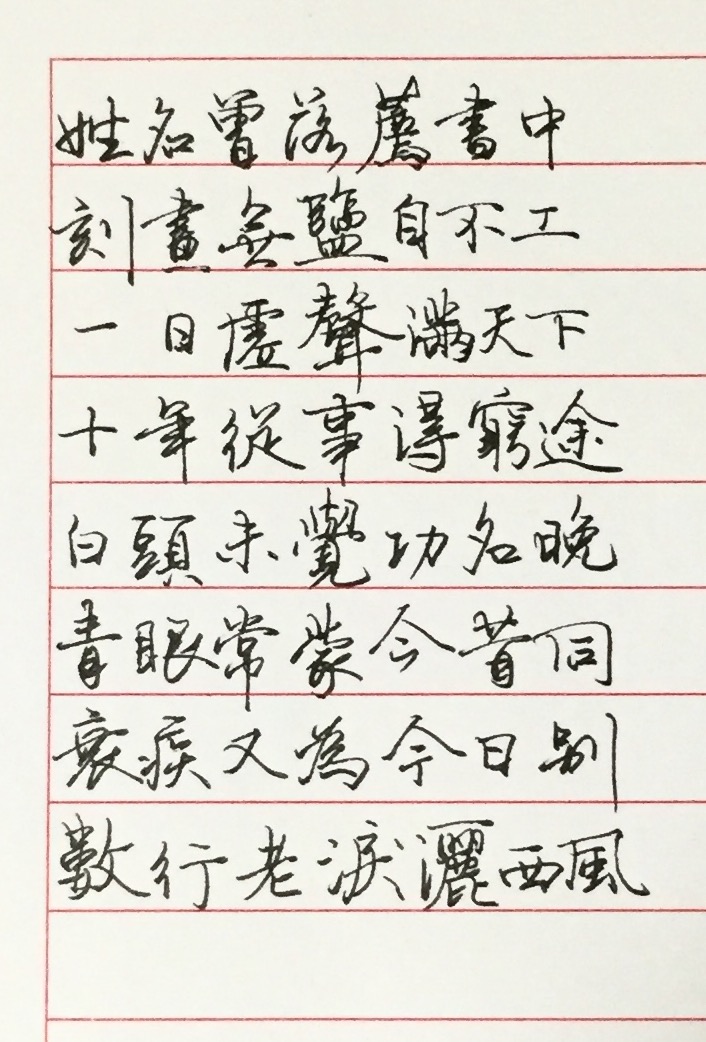 姓名曾落薦書中
刻畫無鹽自不工
一日虛聲滿天下
十年從事得窮途
白頭未覺功名晚
青眼常蒙今昔同
衰疾又為今日別
數行老淚灑西風